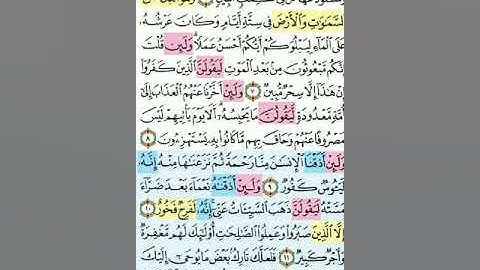 السَّمَٰوَٰتِ وَالْأَرْضَ فِي سِتَّةِ أَيَّامٍ وَكَانَ عَرْشُهُ
عَلَى الْمَاءِ لِيَبْلُوَكُمْ أَيُّكُمْ أَحْسَنُ عَمَلًا وَلَئِن قُلْتَ
إِنَّكُم مَّبْعُوثُونَ مِن بَعْدِ الْمَوْتِ لَيَقُولَنَّ الَّذِينَ كَفَرُوا
إِنْ هَٰذَا إِلَّا سِحْرٌ مُّبِينٌ ٧ وَلَئِنْ أَخَّرْنَا عَنْهُمُ الْعَذَابَ إِلَىٰ
أُمَّةٍ مَّعْدُودَةٍ لَّيَقُولُنَّ مَا يَحْبِسُهُ أَلَا يَوْمَ يَأْتِيهِمْ لَيْسَ
مَصْرُوفًا عَنْهُمْ وَحَاقَ بِهِم مَّا كَانُوا بِهِ يَسْتَهْزِءُونَ ٨
وَلَئِنْ أَذَقْنَا الْإِنسَٰنَ مِنَّا رَحْمَةً ثُمَّ نَزَعْنَٰهَا مِنْهُ إِنَّهُ
لَيَـُٔوسٌ كَفُورٌ ٩ وَلَئِنْ أَذَقْنَٰهُ نَعْمَاءَ بَعْدَ ضَرَّاءَ
مَسَّتْهُ لَيَقُولَنَّ ذَهَبَ السَّيِّـَٔاتُ عَنِّي إِنَّهُ لَفَرِحٌ فَخُورٌ ١٠
إِلَّا الَّذِينَ صَبَرُوا وَعَمِلُوا الصَّٰلِحَٰتِ أُولَٰئِكَ لَهُم مَّغْفِرَةٌ
وَأَجْرٌ كَبِيرٌ ١١ فَلَعَلَّكَ تَارِكٌ بَعْضَ مَا يُوحَىٰ إِلَيْكَ